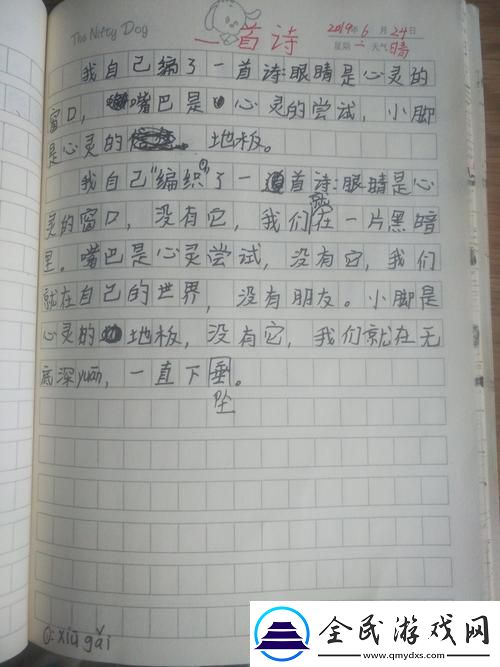 The Nifty Dog
一首诗
2019年6月24日
星期二 天气晴
我自己编了一首诗:眼睛是心灵的
窗口,嘴巴是心灵的尝试,小脚
是心灵的 地板。
我自己"编织"①了一首诗:眼睛是心
灵的窗口,没有它,我们就在一片黑暗
里。嘴巴是心灵尝试,没有它,我们
就在自己的世界,没有朋友。小脚是
心灵的地板,没有它,我们就在无
底深yuān,一直下垂。
坠
①:xiū gǎi
全民游戏网
www.qmydxs.com